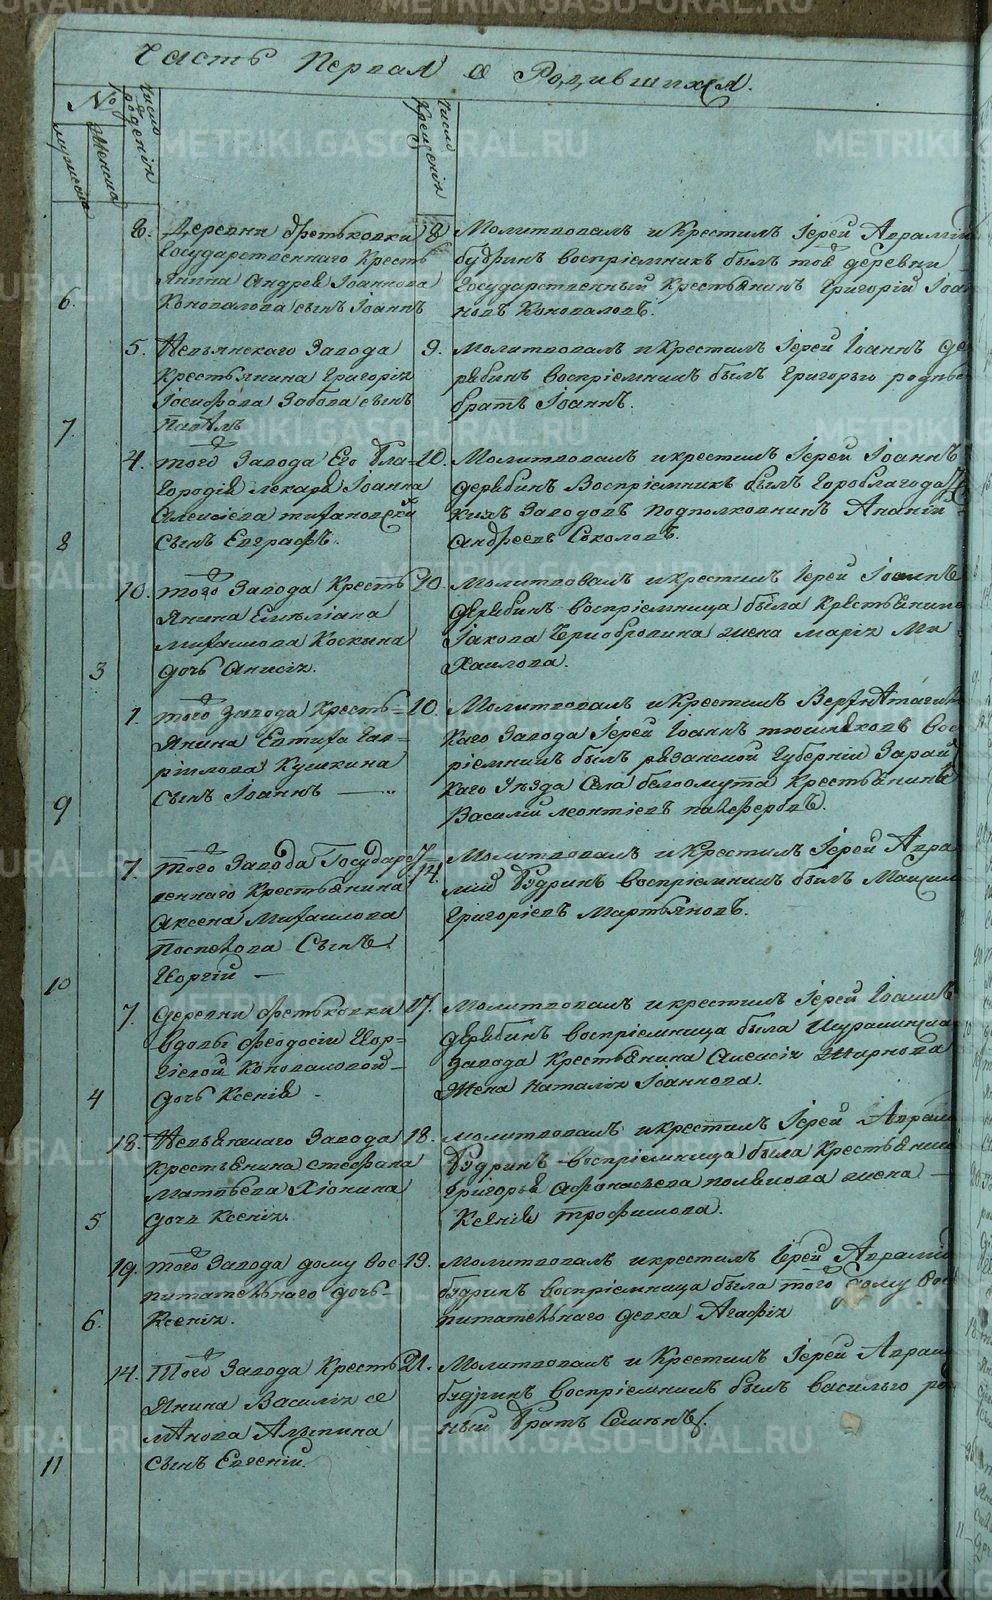 Часть Первая о Родившихся.
№
мужеска
Женска
Число родения
Число Крещения
6.
8. Деревни Фетьковки
Государственнаго Кресть
янина Андрея Іоаннова
Коновалова сынъ Іоаннъ
8 Молитвовалъ и Крестилъ Іерей Аврамій
будринъ воспріемникъ былъ той деревни
Государственный Крестьянинъ Григорій Іоан
новъ Коноваловъ.
7.
5. Невьянскаго Завода
Крестьянина Григорія
Іосифова Зобова сынъ
Павелъ
9. Молитвовалъ и Крестилъ Іерей Іоаннъ де
рябинъ воспріемникъ былъ Григорьго родный
братъ Іоаннъ.
8
4. того Завода Его Бла-
городія лекаря Іоанна
Алексіева
сынъ Евграфъ.
10. Молитвовалъ и крестилъ Іерей Іоаннъ
дерябинъ Воспріемникъ былъ Гороблагодатс
кихъ Заводовъ подполковникъ Ананій
Андреевъ Соколовъ.
3
10. того Завода Кресть
янина Емеліана
Михаилова Коскина
дочь Анисія.
10. Молитвовалъ и крестилъ Іерей Іоаннъ
дерябинъ воспріемница была Крестьянина
Іакова Чернобровина жена марія Ми
хаилова.
9
1. того завода Кресть=
янина Евтифа Гав-
ріилова Кушкина
сынъ Іоаннъ
10. Молитвовалъ и Крестилъ ВерхнеТагильс
каго Завода Іерей Іоаннъ тюшняковъ вос
ріемникъ былъ рязанской Губерніи Зарай
каго Уѣзда Села белоомута Крестьянинъ
Василій леонтіевъ
10
7. того Завода Государст
веннаго Крестьянина
Аксена Михаилова
Поспелова Сынъ
Георгій
14. Молитвовалъ и Крестилъ Іерей Авра
мій Будринъ воспріемникъ былъ Максимъ
Григоріевъ Мартьяновъ.
4
7. деревни Фетьковки
вдовы феодосіи Геор-
гіевой Коноваловой
дочь Ксенія
17. Молитвовалъ и крестилъ Іерей Іоаннъ
дерябинъ воспріемница была Шуралинскаго
Завода Крестьянина Алексія Жирнова
Жена Наталія Іоаннова.
5
18. Невьянскаго Завода
крестьянина стефана
Матвѣева Хіонина
дочь Ксенія.
18. молитвовалъ и Крестилъ Іерей Аврам
Будринъ воспріемница была Крестьянина
Григорья Афонасьева полякова жена
Ксенія трофимова.
6.
19. того Завода дому вос-
питательнаго дочь
Ксенія.
19. Молитвовалъ и крестилъ Іерей Аврамій
бидринъ воспріемница была того дому вос
питательнаго девка Агафія
11
14. Того Завода Кресть
янина Василія се
мянова Аляпина
сынъ Евгеній.
21. Молитвовалъ и Крестилъ Іерей Аврамі
бидринъ воспріемникъ былъ василью род
ный братъ Семенъ.
METRIKI.GASO-URAL.RU